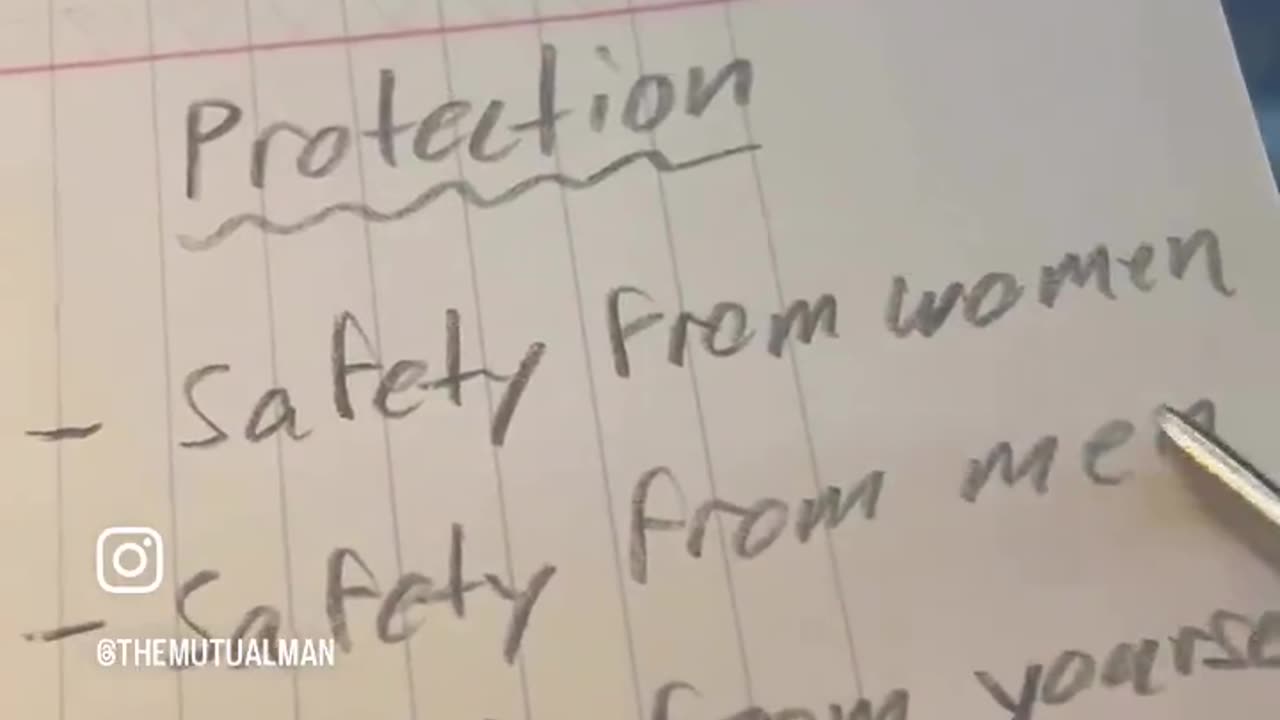 Protection
- Safety from women
- Safety from men
from
@THEMUTUALMAN